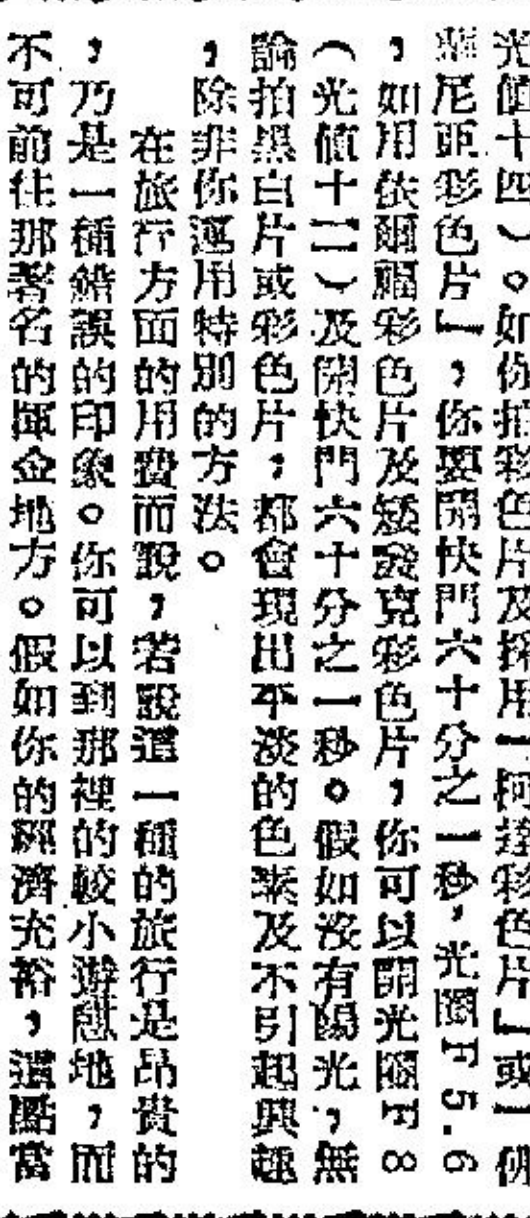 光值十四）。如你拍彩色片及採用「柯達彩色片」或「佛
尼亞彩色片」，你要開快門六十分之一秒，光圈F5.6
，如用依爾福彩色片及矮發克彩色片，你可以開光圈F8
（光值十二）及開快門六十分之一秒。假如沒有陽光，無
論拍黑白片或彩色片，都會現出平淡的色素及不引起興趣
，除非你運用特別的方法。
在旅行方面的用費而說，若說這一種的旅行是昂貴的
，乃是一種錯誤的印象。你可以到那裡的較小遊憩地，而
不可前往那著名的揮金地方。假如你的經濟充裕，這點當